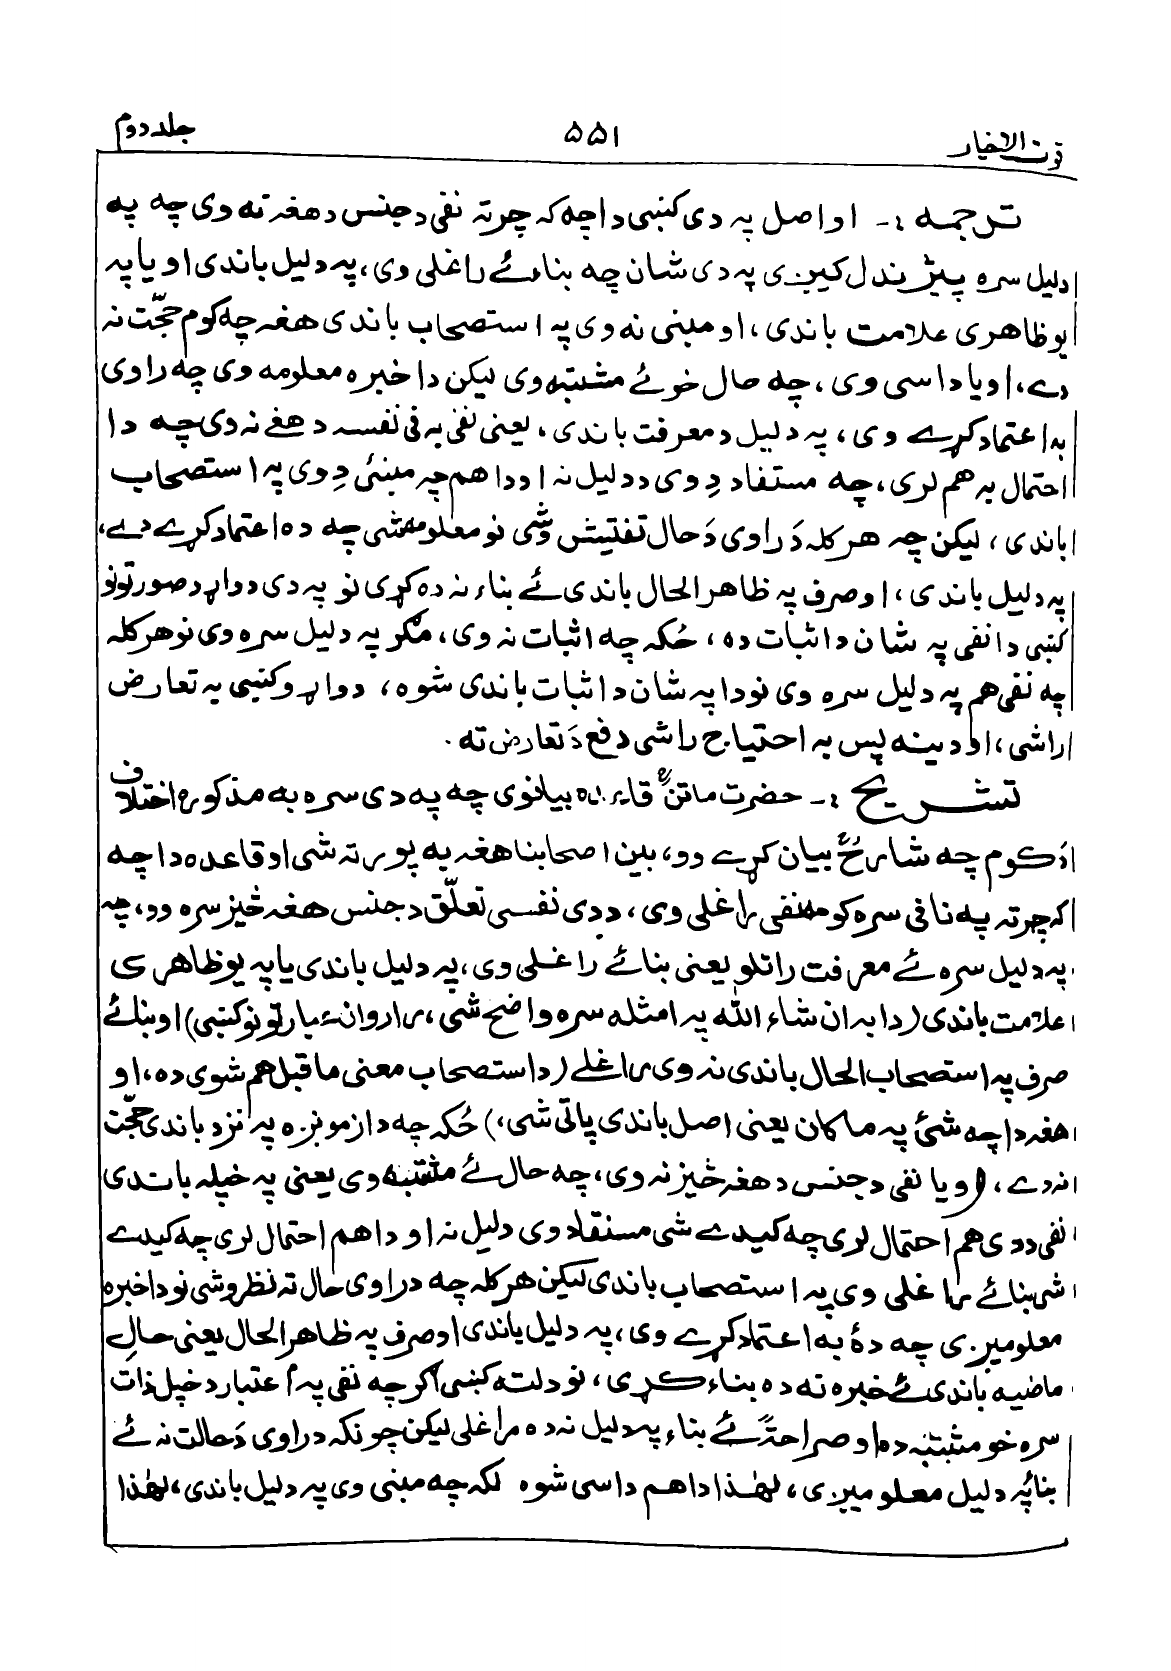 قوت الاخیار ۵۵۱ جلد دوم
ترجمه :- اواصل په دی کښی داچه که چرته نفی د جنس د هغه نه وی چه په
دلیل سره پیژندل کیږی په دی شان چه بنائے راغلی وی، په دلیل باندی اویا په
یو ظاهری علامت باندی، او مبنی نه وی په استصحاب باندی هغه چه کوم حجّت نه
دے، اویا داسی وی، چه حال خوئے مشتبه وی لیکن دا خبره معلومه وی چه راوی
به اعتماد کړے وی، په دلیل د معرفت باندی، یعنی نفی به فی نفسه د هغے نه وی چه دا
احتمال به هم لری، چه مستفاد دِ وی د دلیل نه او دا هم چه مبنیٔ دِ وی په استصحاب
باندی، لیکن چه هرکله دَ راوی دَ حال تفتیش وشی نو معلومه شی چه ده اعتماد کړے دے،
په دلیل باندی، او صرف په ظاهر الحال باندی ئے بناء نه ده کړی نو په دی دواړو صورتونو
کښی دا نفی په شان د اثبات ده، ځکه چه اثبات نه وی، مگر په دلیل سره وی نو هرکله
چه نفی هم په دلیل سره وی نو دا په شان د اثبات باندی شوه، دواړو کښی به تعارض
راشی، اودینه پس به احتیاج راشی دفع دَ تعارض ته۔
تشریح :- حضرت ماتنؒ قاعده بیانوی چه په دی سره به مذکوره اختلاف
دَ کوم چه شارحؒ بیان کړے وو، بین اصحابنا هغه به پوره ته شی او قاعده دا چه
که چرته په نافی سره کوم نفی راغلی وی، ددی نفسی تعلّق د جنس هغه څیز سره وو، چه
په دلیل سره ئے معرفت راتلو یعنی بنائے راغلی وی، په دلیل باندی یا په یو ظاهری
علامت باندی (دا به ان شاء الله په امثله سره واضح شی، روانۓ عبارتونو کښی) او بنائے
صرف په استصحاب الحال باندی نه وی راغلے (د استصحاب معنی ماقبل هم شوی ده، او
هغه دا چه شئ په ما کان یعنی اصل باندی پاتی شی،) ځکه چه دا زمونږه په نزد باندی حجّت
نه دے، اویا نفی د جنس د هغه څیز نه وی، چه حال ئے مشتبه وی یعنی په خپله باندی
نفی ددی هم احتمال لری چه کیدے شی مستفاد وی دلیل نه او دا هم احتمال لری چه کیدے
شی بنائے راغلی وی په استصحاب باندی لیکن هرکله چه د راوی حال ته نظر وشی نو دا خبره
معلومیږی چه دۀ به اعتماد کړے وی، په دلیل باندی او صرف په ظاهر الحال یعنی حالِ
ماضیه باندی ئے خبره نه ده بناء کړی، نو دلته کښی اگرچه نفی په اعتبار د خپل ذات
سره خو مشتبه ده او صراحةً ئے بناء په دلیل نه ده راغلی لیکن چونکه د راوی دَ حالت نه ئے
بنا په دلیل معلومیږی، لهٰذا دا هم داسی شوه لکه چه مبنی وی په دلیل باندی، لهٰذا